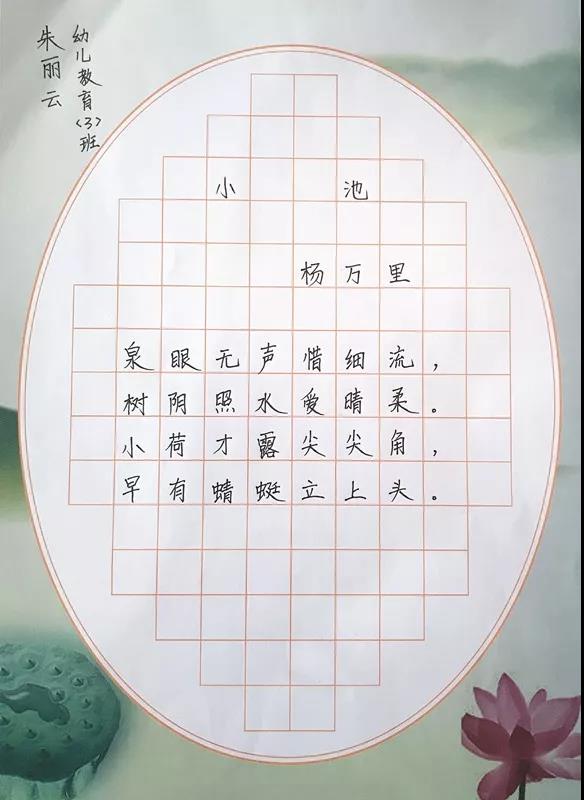 幼儿教育(3)班
朱丽云
小池
杨万里
泉眼无声惜细流，
树阴照水爱晴柔。
小荷才露尖尖角，
早有蜻蜓立上头。